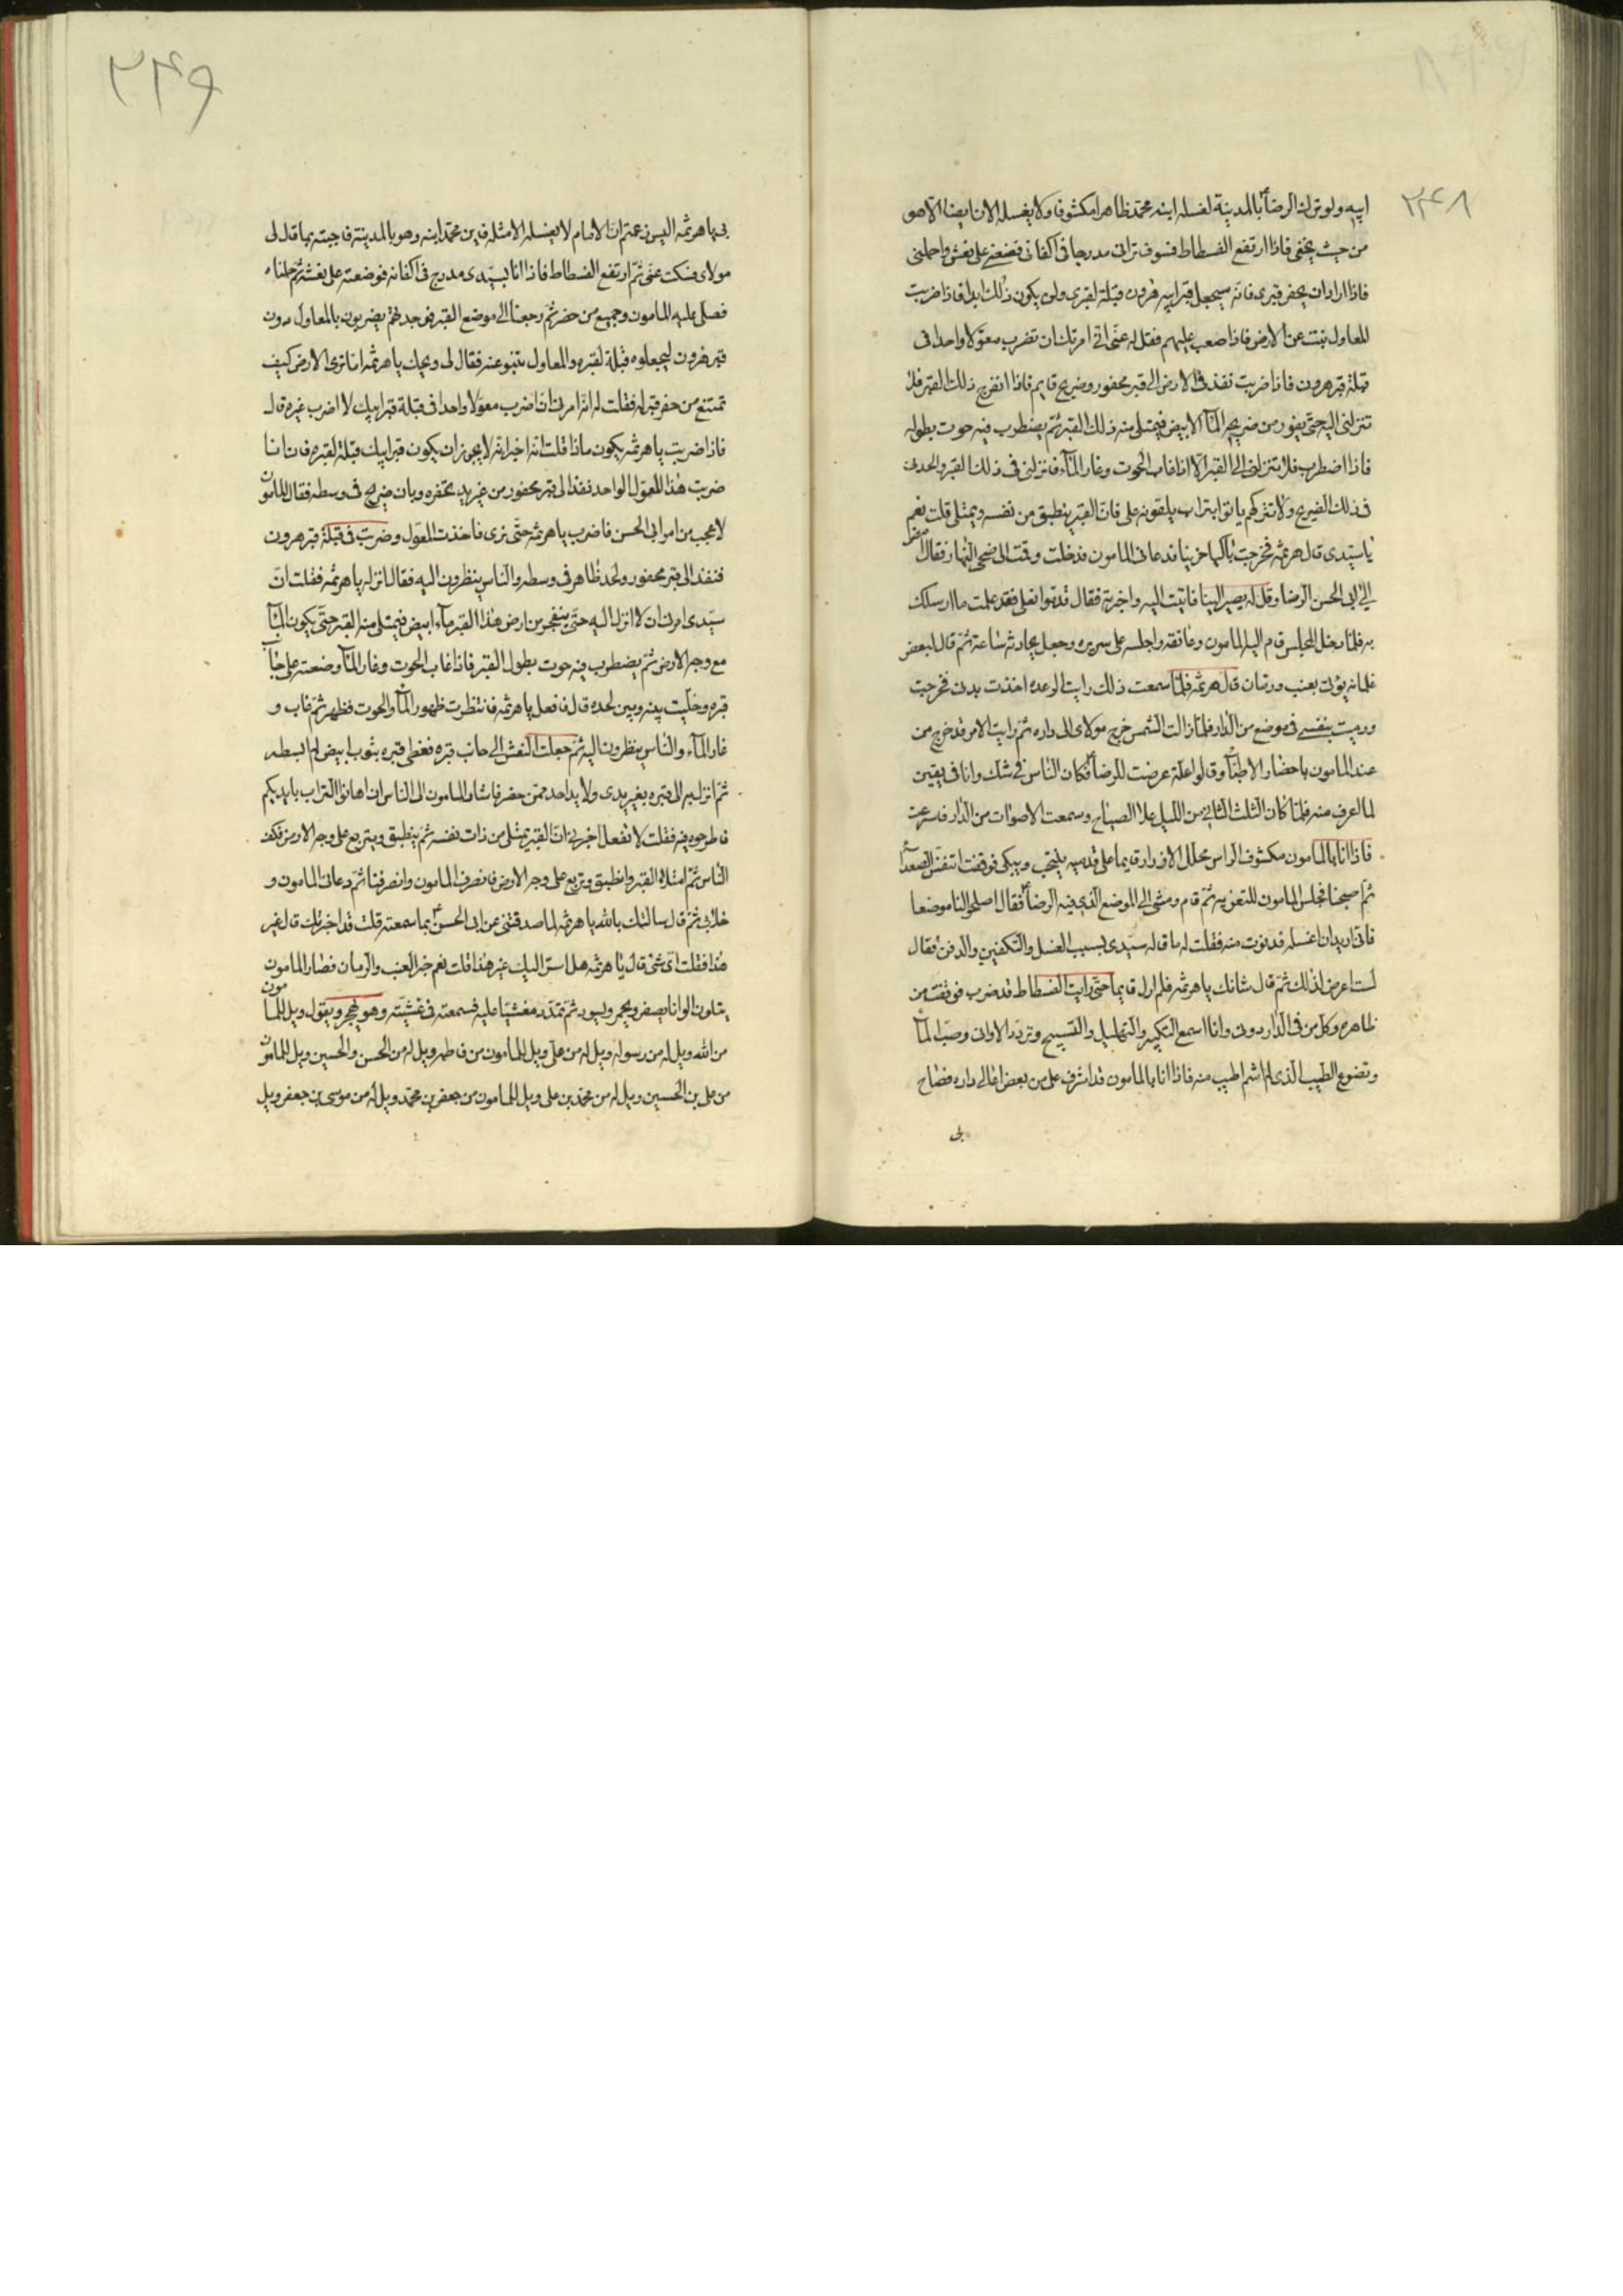 ٢٤٨
ابيه ولو ترك الرضا ع بالمدينة لغسله ابنه محمد ظاهرا مكشوفا ولا يغسله الان ايضا الا هو
من حيث يخفى فاذا ارتفع الفسطاط فسوف ترانى مدرجا فى اكفانى فضعنى على نعش واحملنى
فاذا اراد ان يحفر قبرى فانه سيجعل قبر ابيه هرون قبلة لقبرى ولن يكون ذلك ابدا فاذا ضربت
المعاول نبت عن الارض فاذا صعب عليهم فقل له عنى انى امرتك ان تضرب معولا واحدا فى
قبلة قبر هرون فاذا ضربت نفذ فى الارض الى قبر محفور وضريح قايم فاذا انفرج ذلك القبر فلا
تنزلنى اليه حتى يفور من ضريحه المآء الابيض فيمتلى منه ذلك القبر ثم يضطرب فيه حوت بطوله
فاذا اضطرب فلا تنزلنى الى القبر الا اذا غاب الحوت وغار المآء فانزلنى فى ذلك القبر والحدنى
فى ذلك الضريح ولا تتركهم ياتوا بتراب يلقونه على فان القبر ينطبق من نفسه ويمتلى قلت نعم
يا سيدى قال هرثمه فخرجت باكيا حزينا فدعانى المامون فدخلت وقمت الى ضحى النهار فقال امض
الى ابى الحسن الرضا وقل له يصير الينا فاتيت اليه واخبرته فقال قدموا نعلى فقد علمت ما ارسلك
به فلما دخل المجلس قام اليه المامون وعانقه واجلسه على سريره وجعل يحادثه ساعة ثم قال لبعض
غلمانه يؤتى بعنب ورمان قال هرثمه فلما سمعت ذلك رايت الوعده اخذت بدنى فخرجت
ورميت بنفسى فى موضع من الدار فلما زالت الشمس خرج مولاى الى داره ثم رايت الامر قد خرج من
عند المامون باحضار الاطبآء وقالوا علة عرضت للرضا ع فكان الناس فى شك وانا فى يقين
لما اعرف منه فلما كان الثلث الثانى من الليل علا الصياح وسمعت الاصوات من الدار فاسرعت
فاذا انا بالمامون مكشوف الراس محلل الازرار قايما على قدميه ينتحب ويبكى فوقفت اتنفس الصعدآء
ثم اصبحنا فجلس المامون للتعزيه ثم قام ومشى الى الموضع الذى فيه الرضا ع فقال اصلحوا لنا موضعا
فانى اريد ان اغسله فدنوت منه فقلت له ما قاله سيدى بسبب الغسل والتكفين والدفن فقال
لست اعرض لذلك ثم قال شانك يا هرثمه فلم ازل قايما حتى رايت الفسطاط قد ضرب فوقفت من
ظاهره وكل من فى الدار دونى وانا اسمع التكبير والتهليل والتسبيح وتردد الاوانى وصب المآء
وتضوع الطيب الذى لم اشم اطيب منه فاذا انا بالمامون قد اشرف على من بعض اعالى داره فصاح
بى
٢٤٩
بى يا هرثمه اليس زعمتم ان الامام لا يغسله الا مثله فاين محمد ابنه وهو بالمدينة فاجبته بما قال لى
مولاى فسكت عنى ثم ارتفع الفسطاط فاذا انا بسيدى مدرج فى اكفانه فوضعته على نعشه ثم حملناه
فصلى عليه المامون وجميع من حضر ثم رجعنا الى موضع القبر فوجدتهم يضربون بالمعاول دون
قبر هرون ليجعلوه قبلة لقبره والمعاول تنبو عنه فقال لى ويحك يا هرثمه اما ترى الارض كيف
تمتنع من حفر قبر له فقلت له انه امرنى ان اضرب معولا واحدا فى قبلة قبر ابيك لا اضرب غيره قال
فاذا ضربت يا هرثمه يكون ماذا قلت انه اخبر انه لا يجوز ان يكون قبر ابيك قبلة لقبره فان انا
ضربت هذا المعول الواحد نفذ الى قبر محفور من غير يد تحفره وبان ضريح فى وسطه فقال المامون
لا عجب من امر ابى الحسن فاضرب يا هرثمه حتى نرى فاخذت المعول وضربت فى قبلة قبر هرون
فنفذ الى قبر محفور ولحد ظاهر فى وسطه والناس ينظرون اليه فقال انزله يا هرثمه فقلت ان
سيدى امرنى ان لا انزل اليه حتى ينفجر من ارض هذا القبر مآء ابيض فيمتلى منه القبر حتى يكون المآء
مع وجه الارض ثم يضطرب فيه حوت بطول القبر فاذا غاب الحوت وغار المآء وضعته على جانب
قبره وخليت بينه وبين لحده قال فافعل يا هرثمه فانتظرت ظهور المآء والحوت فظهر ثم غاب و
غار المآء والناس ينظرون اليه ثم جعلت النعش الى جانب قبره فغطى قبره بثوب ابيض لم ابسطه
ثم انزل به الى قبره بغير يدى ولا يد احد ممن حضر فاشار المامون الى الناس ان اهاتوا التراب بايديكم
فاطرحوه فيه فقلت لا تفعل اخبرنى ان القبر يمتلى من ذات نفسه ثم ينطبق ويتربع على وجه الارض فكف
الناس ثم امتلاء القبر وانطبق وتربع على وجه الارض فانصرف المامون وانصرفنا ثم دعانى المامون و
خلا بى ثم قال سالتك بالله يا هرثمه لما صدقتنى عن ابى الحسن ع بما سمعته قلت قد اخبرتك قال غير
هذا فقلت اى شئ قال يا هرثمه هل اسر اليك غير هذا قلت نعم خبر العنب والرمان فصار المامون
يتلون الوانا يصفر ويحمر ويسود ثم تمدد مغشيا عليه فسمعته فى غشيته وهو يهجر ويقول ويل للمامون
من الله ويل له من رسوله ويل له من على ويل للمامون من فاطمه ويل له من الحسن والحسين ويل للمامون
من على بن الحسين ويل له من محمد بن على ويل للمامون من جعفر بن محمد ويل له من موسى بن جعفر ويل